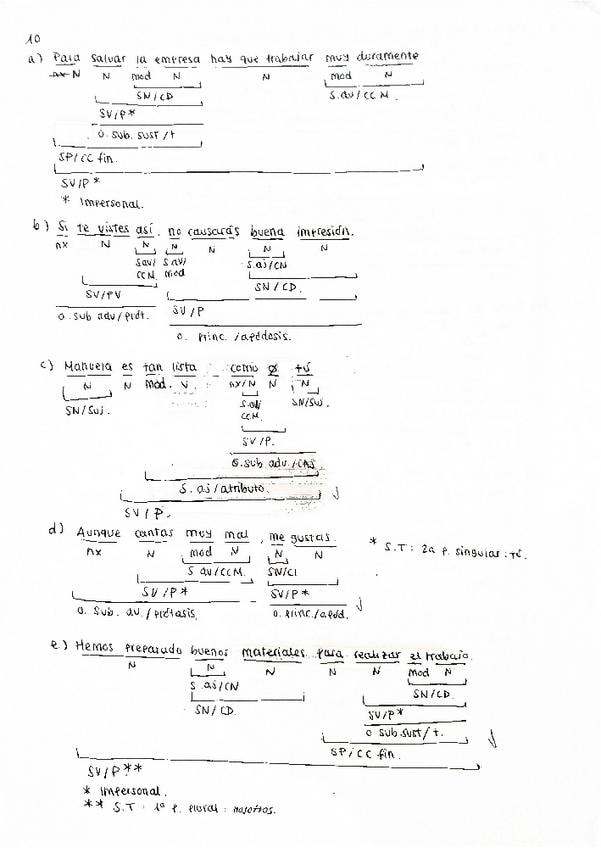 10
a) Para salvar la empresa hay que trabajar muy duramente
N N mod N N mod N
SN/CD S.av/CCM.
SV/P*
O. sub. sust/t
SP/CC fin.
SV/P*
* Impersonal.
b) Si te vistes así, no causarás buena impresión.
nx N N N N N N
S.av/ S.av/ S.aj/CN
CCM. mod
SN/CD.
SV/PV SV/P
O. sub adv/prót. O. princ./apódosis.
c) Manuela es tan lista como Ø tú
N N mod. N nx/N N N
SN/Suj. S.av/ SN/Suj.
CCM.
SV/P.
O. sub adv./CAj
S. aj/atributo.
SV/P.
d) Aunque cantas muy mal, me gustas. * S.T: 2ª p. singular: tú.
nx N mod N N N
S av/CCM. SN/CI
SV/P* SV/P*
O. Sub. av./prótasis. O. princ./apód.
e) Hemos preparado buenos materiales para realizar el trabajo.
N N N N N mod N
S.aj/CN SN/CD.
SN/CD. SV/P*
O sub.sust/t.
SP/CC fin.
SV/P**
* Impersonal.
** S.T: 1ª p. plural: nosotros.